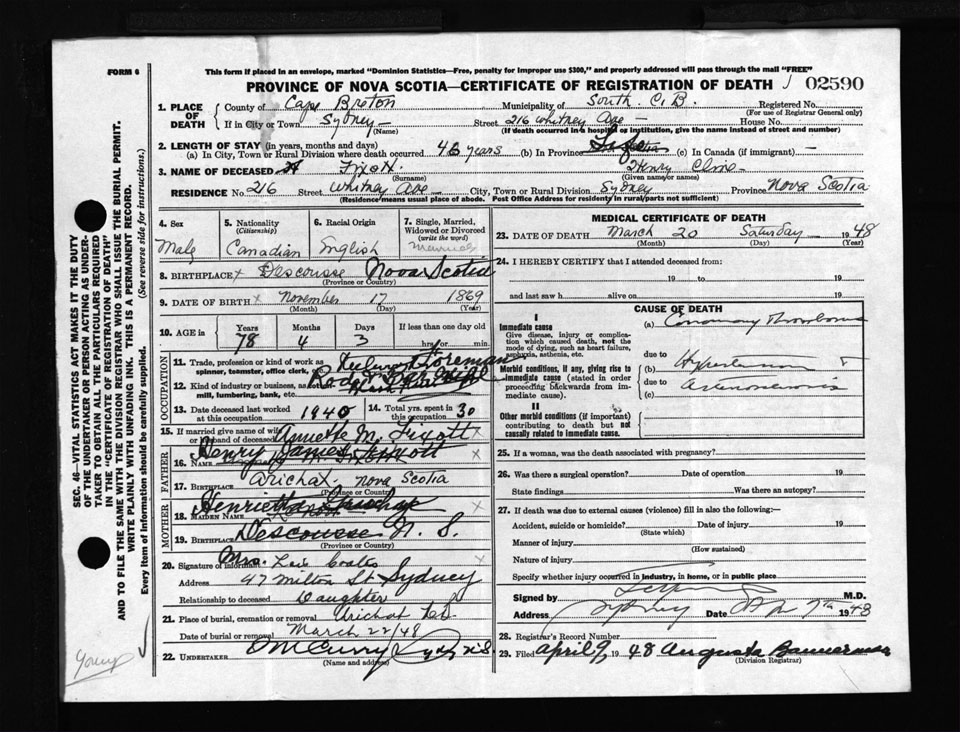 FORM 6
This form if placed in an envelope, marked "Dominion Statistics—Free, penalty for improper use $300," and properly addressed will pass through the mail "FREE"
PROVINCE OF NOVA SCOTIA—CERTIFICATE OF REGISTRATION OF DEATH 02590
1. PLACE OF DEATH County of Cape Breton Municipality of South C.B. Registered No.
(For use of Registrar General only)
If in City or Town Sydney Street 216 Whitney Ave House No.
(Name) (If death occurred in a hospital or institution, give the name instead of street and number)
2. LENGTH OF STAY (in years, months and days)
(a) In City, Town or Rural Division where death occurred years (b) In Province Life (c) In Canada (if immigrant) —
3. NAME OF DECEASED Fixott Henry Clive
(Surname) (Given name or names)
RESIDENCE No. 216 Street Whitney Ave City, Town or Rural Division Sydney Province Nova Scotia
(Residence means usual place of abode. Post Office Address for residency in rural parts not sufficient)
4. Sex Male
5. Nationality (Citizenship) Canadian
6. Racial Origin English
7. Single, Married, Widowed or Divorced (write the word) Married
8. BIRTHPLACE Descousse Nova Scotia
(Province or Country)
9. DATE OF BIRTH November 17 1869
(Month) (Day) (Year)
10. AGE in Years Months Days If less than one day old
78 4 3 hrs. or min.
OCCUPATION
11. Trade, profession or kind of work as spinner, teamster, office clerk, Foreman
12. Kind of industry or business, as mill, lumbering, bank, etc.
13. Date deceased last worked at this occupation 1940
14. Total yrs. spent in this occupation 30
15. If married give name of wife or husband of deceased Annette M. Fixott
FATHER
16. NAME Henry James Fixott
17. BIRTHPLACE Arichat Nova Scotia
(Province or Country)
MOTHER
18. MAIDEN NAME Henrietta
19. BIRTHPLACE Descousse N. S.
(Province or Country)
20. Signature of informant Mrs. Coates
Address 47 Milton St Sydney
Relationship to deceased Daughter
21. Place of burial, cremation or removal Arichat
Date of burial or removal March 22/48
22. UNDERTAKER Sydney N.S.
(Name and address)
MEDICAL CERTIFICATE OF DEATH
23. DATE OF DEATH March 20 Saturday 1948
(Month) (Day) (Year)
24. I HEREBY CERTIFY that I attended deceased from:
19 to 19
and last saw h alive on 19
CAUSE OF DEATH
I
Immediate cause
Give disease, injury or complication which caused death, not the mode of dying, such as heart failure, asphyxia, asthenia, etc.
(a) Coronary Thrombosis
due to
Morbid conditions, if any, giving rise to immediate cause (stated in order proceeding backwards from immediate cause).
(b) Hypertension
due to
(c) Arteriosclerosis
II
Other morbid conditions (if important) contributing to death but not causally related to immediate cause.
25. If a woman, was the death associated with pregnancy?
26. Was there a surgical operation? Date of operation 19
State findings Was there an autopsy?
27. If death was due to external causes (violence) fill in also the following:—
Accident, suicide or homicide? Date of injury 19
(State which)
Manner of injury
(How sustained)
Nature of injury
Specify whether injury occurred in industry, in home, or in public place
Signed by M.D.
Address Sydney Date Apr 7th 1948
28. Registrar's Record Number
29. Filed April 9, 1948 Augusta Bannerman
(Division Registrar)
SEC. 46—VITAL STATISTICS ACT MAKES IT THE DUTY
OF THE UNDERTAKER OR PERSON ACTING AS UNDERTAKER TO OBTAIN ALL THE PARTICULARS REQUIRED
IN THE "CERTIFICATE OF REGISTRATION OF DEATH"
AND TO FILE THE SAME WITH THE DIVISION REGISTRAR WHO SHALL ISSUE THE BURIAL PERMIT.
WRITE PLAINLY WITH UNFADING INK. THIS IS A PERMANENT RECORD.
Every item of information should be carefully supplied. (See reverse side for instructions.)